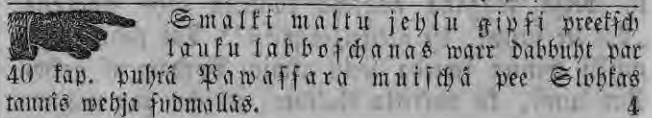 Smalki maltu jehlu gipsi preeksch
lauku labboschanas warr dabbuht par
40 kap. puhrâ Pawassara muischâ pee Slohkas
tannîs wehja sudmallâs. 4